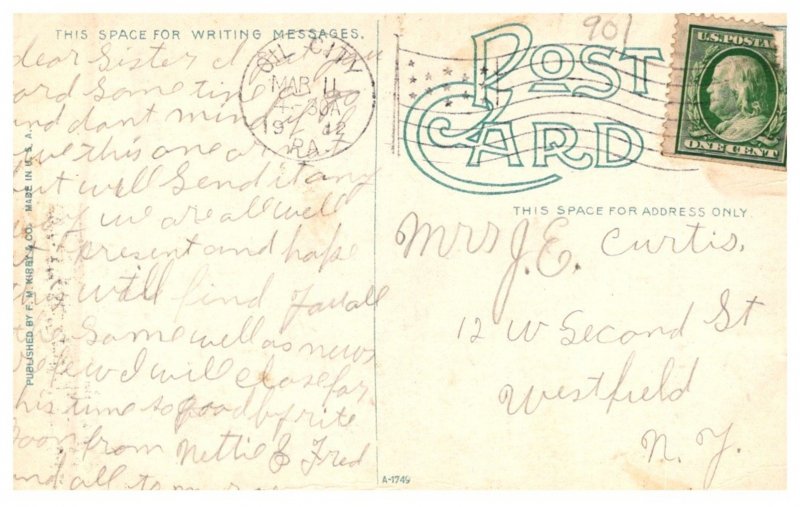 THIS SPACE FOR WRITING MESSAGES.
dear Sister
ard Some time ago
and dont mind if
ove this one
but will Send it any
way we are all well
at present and hope
will find you all
the Same well as news
is few I will close for
this time so good by rite
Soon from Nettie & Fred
and all to
PUBLISHED BY F. M. KIRBY & CO. MADE IN U. S. A.
OIL CITY
MAR 11
-30A
19 12
PA.
901
POST
CARD
U.S. POSTA
ONE CENT
THIS SPACE FOR ADDRESS ONLY.
Mrs J.E. Curtis.
12 W Second St
Westfield
N. Y.
A-1749